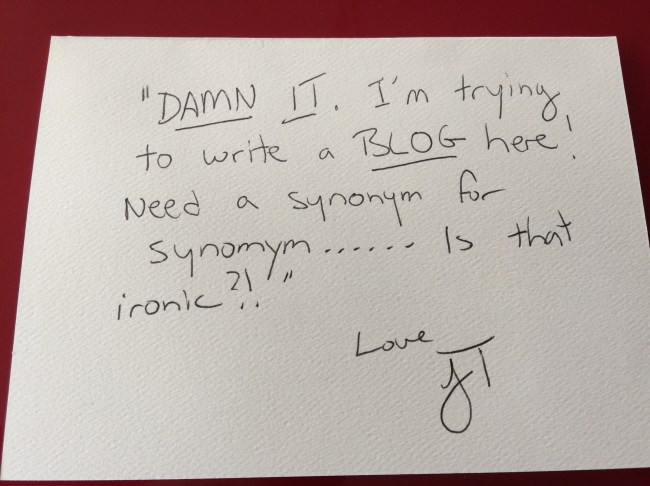 "DAMN IT. I'm trying
to write a BLOG here!
Need a synonym for
synomym...... Is that
ironic?!.."
Love